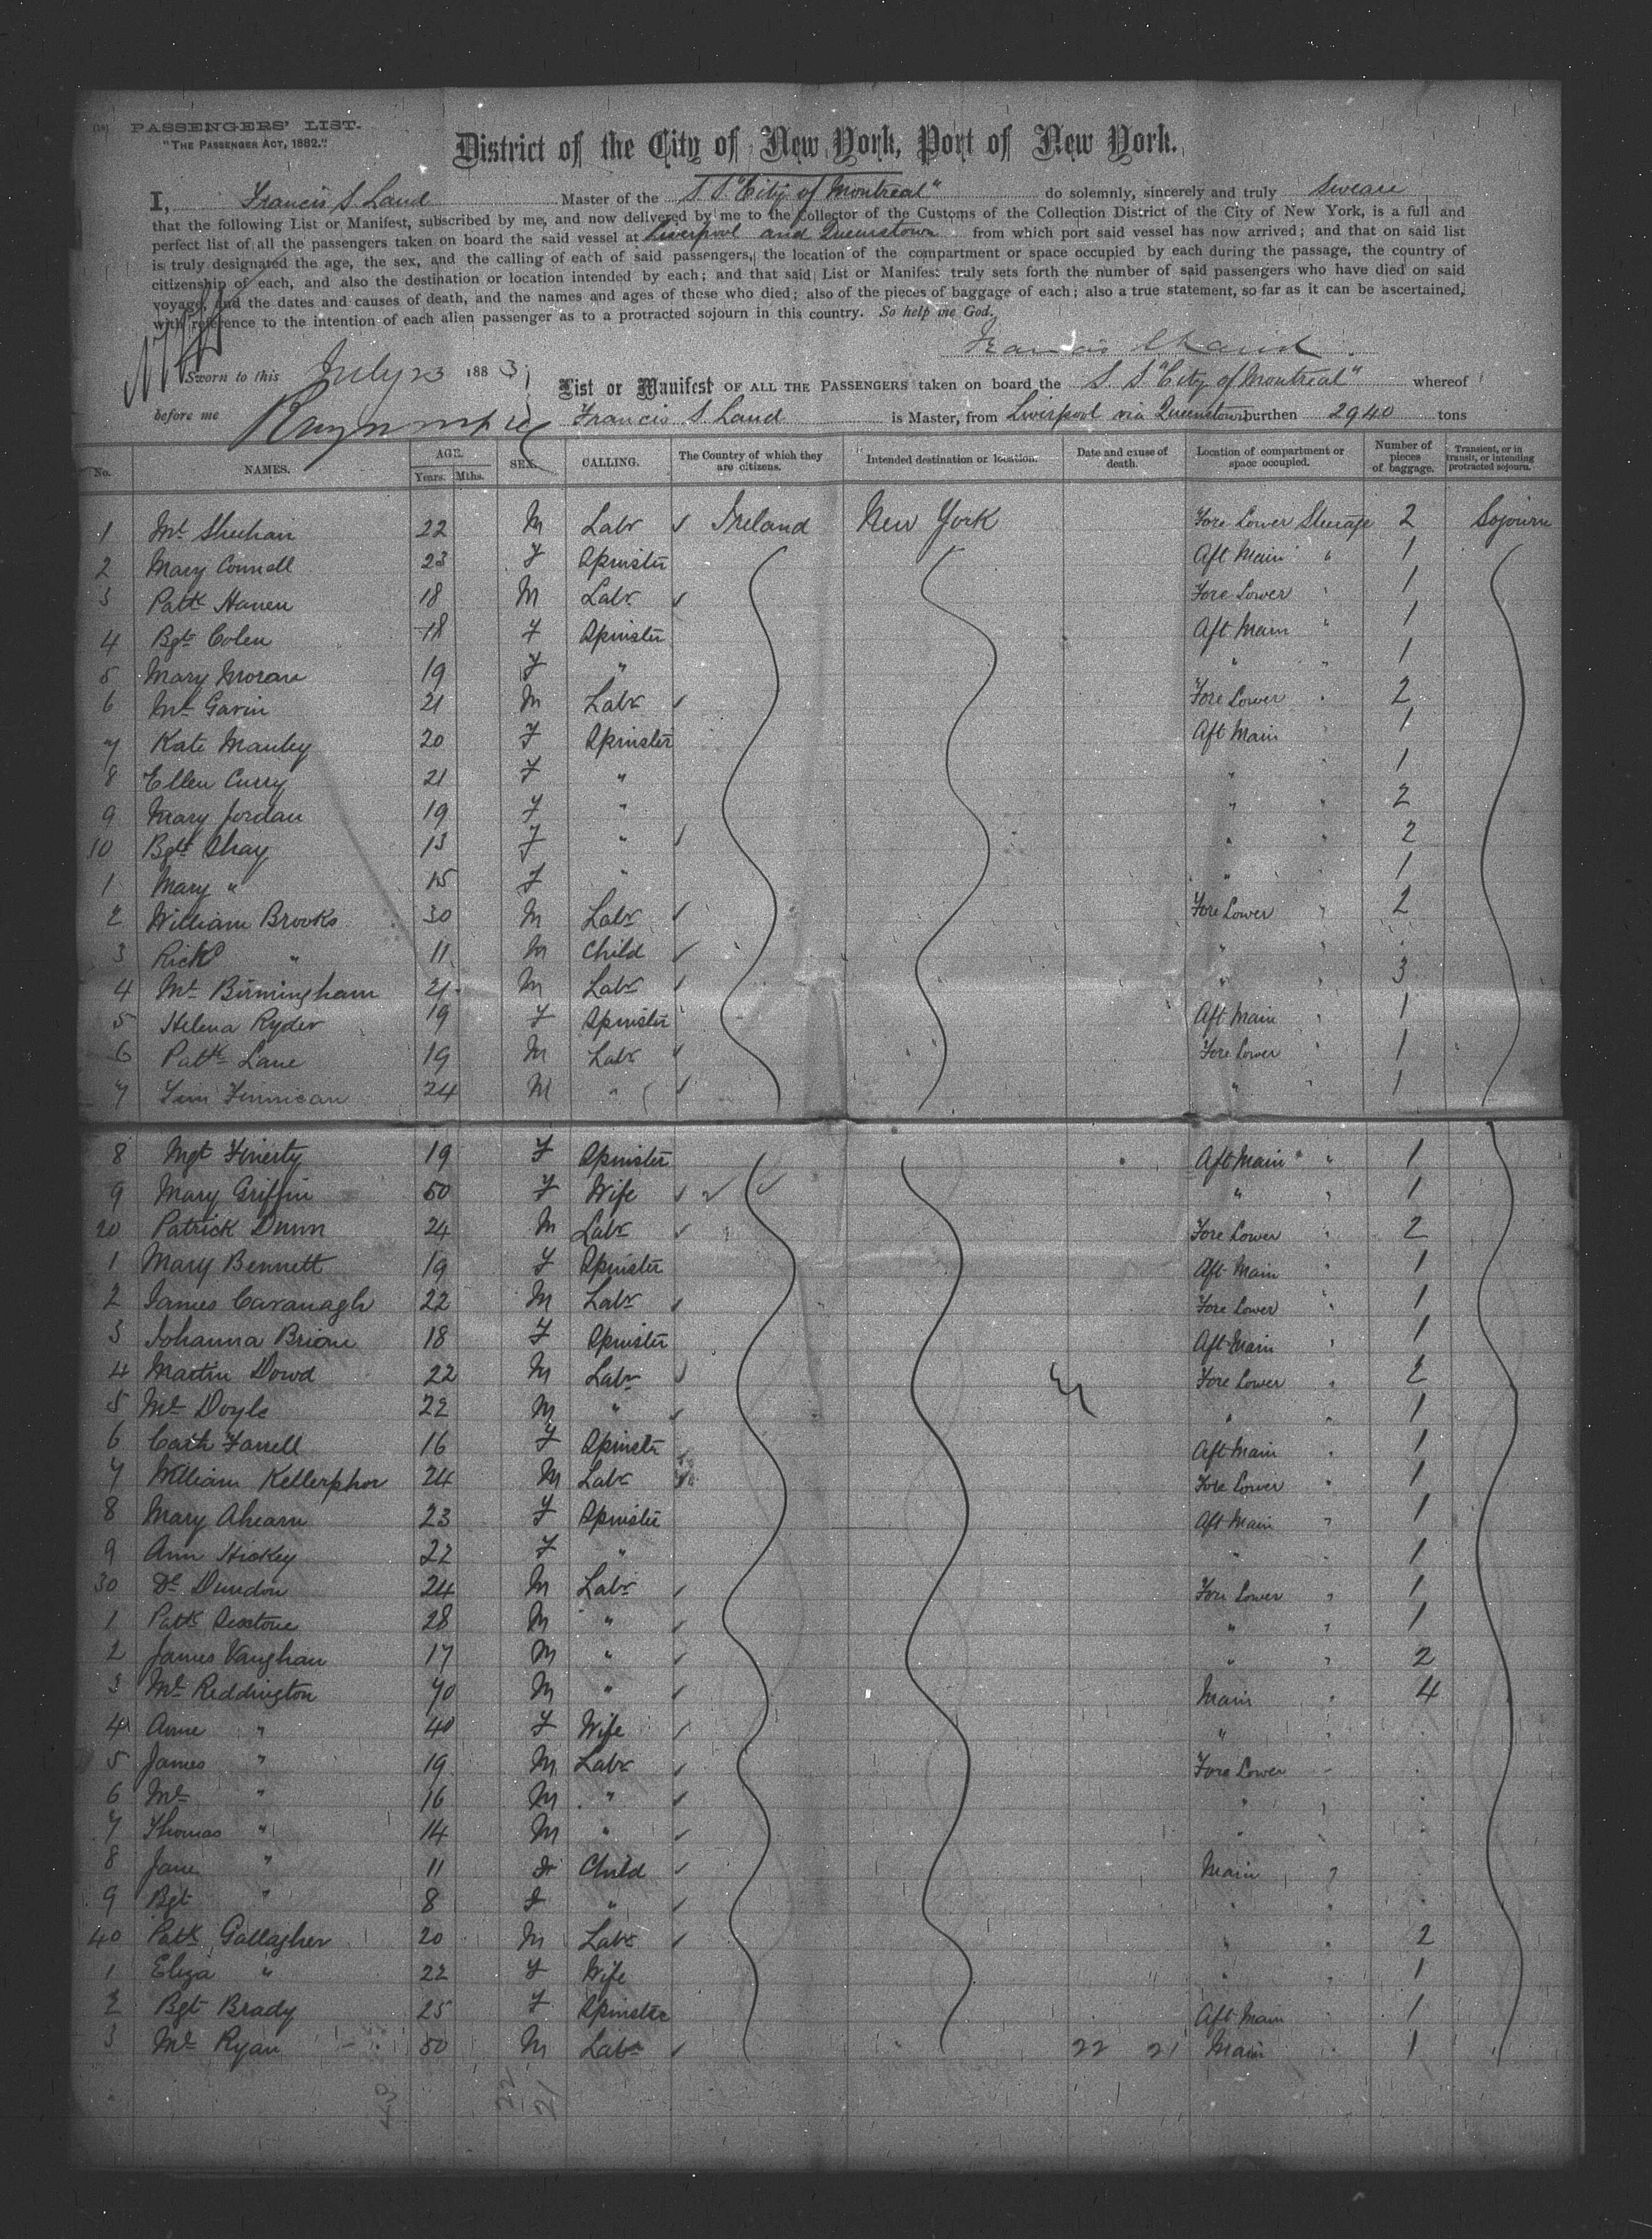 (18) PASSENGERS' LIST.
"THE PASSENGER ACT, 1882."
District of the City of New York, Port of New York.
I, Francis S Land Master of the S S "City of Montreal" do solemnly, sincerely and truly Swear
that the following List or Manifest, subscribed by me, and now delivered by me to the Collector of the Customs of the Collection District of the City of New York, is a full and
perfect list of all the passengers taken on board the said vessel at Liverpool and Queenstown from which port said vessel has now arrived; and that on said list
is truly designated the age, the sex, and the calling of each of said passengers, the location of the compartment or space occupied by each during the passage, the country of
citizenship of each, and also the destination or location intended by each; and that said List or Manifest truly sets forth the number of said passengers who have died on said
voyage, and the dates and causes of death, and the names and ages of those who died; also of the pieces of baggage of each; also a true statement, so far as it can be ascertained,
with reference to the intention of each alien passenger as to a protracted sojourn in this country. So help me God.
Francis S Land
Sworn to this July 23 1883
before me
List or Manifest OF ALL THE PASSENGERS taken on board the S. S "City of Montreal" whereof
Francis S Land is Master, from Liverpool via Queenstown burthen 2940 tons
No. NAMES. AGE. Years. Mths. SEX. CALLING. The Country of which they are citizens. Intended destination or location. Date and cause of death. Location of compartment or space occupied. Number of pieces of baggage. Transient, or in transit, or intending protracted sojourn.
1 Ml Sheehan 22 M Labr Ireland New York Fore Lower Steerage 2 Sojourn
2 Mary Connell 23 F Spinster Aft Main " 1
3 Patk Haven 18 M Labr Fore Lower " 1
4 Bgt Colen 18 F Spinster Aft Main " 1
5 Mary Moran 19 F " " " 1
6 Ml Gavin 21 M Labr Fore Lower " 2
7 Kate Manley 20 F Spinster Aft Main " 1
8 Ellen Curry 21 F " " " 1
9 Mary Jordan 19 F " " " 2
10 Bgt Shay 13 F " " " 2
1 Mary " 15 F " " " 1
2 William Brooks 30 M Labr Fore Lower " 2
3 Rickd " 11 M Child " "
4 Ml Birmingham 21 M Labr " " 3
5 Helena Ryder 19 F Spinster Aft Main " 1
6 Patk Lane 19 M Labr Fore Lower " 1
7 Tim Finnican 24 M " " " 1
8 Mgt Finerty 19 F Spinster Aft Main " 1
9 Mary Griffin 50 F Wife " " 1
20 Patrick Dunn 24 M Labr Fore Lower " 2
1 Mary Bennett 19 F Spinster Aft Main " 1
2 James Cavanagh 22 M Labr Fore Lower " 1
3 Johanna Brione 18 F Spinster Aft Main " 1
4 Martin Dowd 22 M Labr Fore Lower " 2
5 Ml Doyle 22 M " " " 1
6 Cath Farrell 16 F Spinster Aft Main " 1
7 William Kellerphor 24 M Labr Fore Lower " 1
8 Mary Ahearn 23 F Spinster Aft Main " 1
9 Ann Hickey 22 F " " " 1
30 Dl Dundon 24 M Labr Fore Lower " 1
1 Patk Sextone 28 M " " " 1
2 James Vaughan 17 M " " " 2
3 Ml Reddington 40 M " Main " 4
4 Anne " 40 F Wife " "
5 James " 19 M Labr Fore Lower "
6 Ml " 16 M " " "
7 Thomas " 14 M " " "
8 Jane " 11 F Child Main "
9 Bgt " 8 F " " "
40 Patk Gallagher 20 M Labr " " 2
1 Eliza " 22 F Wife " " 1
2 Bgt Brady 25 F Spinster Aft Main " 1
3 Ml Ryan 50 M Labr 22 21 Main " 1
43 22 21